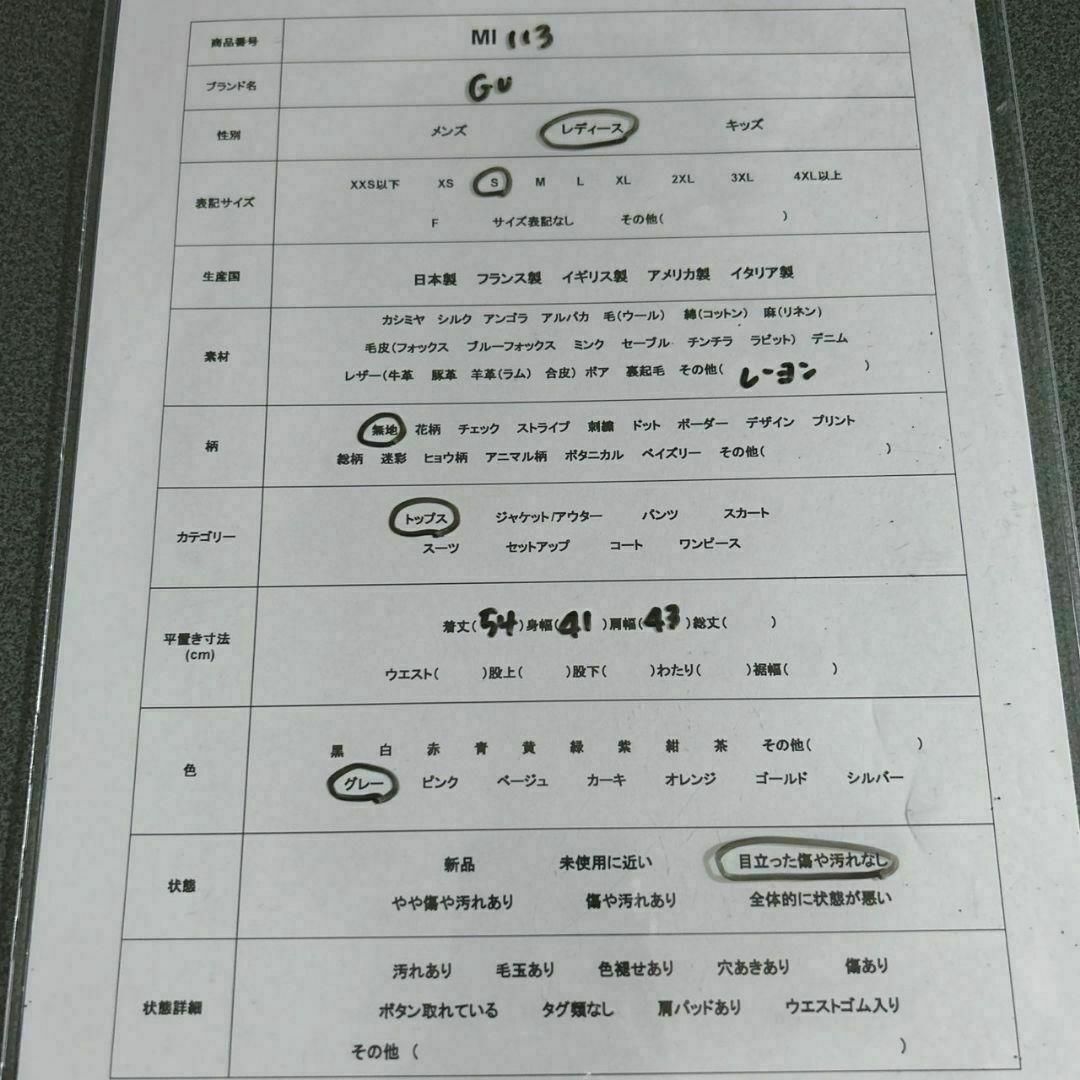 商品番号 MI 113
ブランド名 GU
性別 メンズ レディース キッズ
表記サイズ XXS以下 XS S M L XL 2XL 3XL 4XL以上
F サイズ表記なし その他( )
生産国 日本製 フランス製 イギリス製 アメリカ製 イタリア製
素材 カシミヤ シルク アンゴラ アルパカ 毛(ウール) 綿(コットン) 麻(リネン)
毛皮(フォックス ブルーフォックス ミンク セーブル チンチラ ラビット) デニム
レザー(牛革 豚革 羊革(ラム) 合皮) ボア 裏起毛 その他( レーヨン )
柄 無地 花柄 チェック ストライプ 刺繍 ドット ボーダー デザイン プリント
総柄 迷彩 ヒョウ柄 アニマル柄 ボタニカル ペイズリー その他( )
カテゴリー トップス ジャケット/アウター パンツ スカート
スーツ セットアップ コート ワンピース
平置き寸法 (cm) 着丈( 54 )身幅( 41 )肩幅( 43 )総丈( )
ウエスト( )股上( )股下( )わたり( )裾幅( )
色 黒 白 赤 青 黄 緑 紫 紺 茶 その他( )
グレー ピンク ベージュ カーキ オレンジ ゴールド シルバー
状態 新品 未使用に近い 目立った傷や汚れなし
やや傷や汚れあり 傷や汚れあり 全体的に状態が悪い
状態詳細 汚れあり 毛玉あり 色褪せあり 穴あきあり 傷あり
ボタン取れている タグ類なし 肩パッドあり ウエストゴム入り
その他 ( )